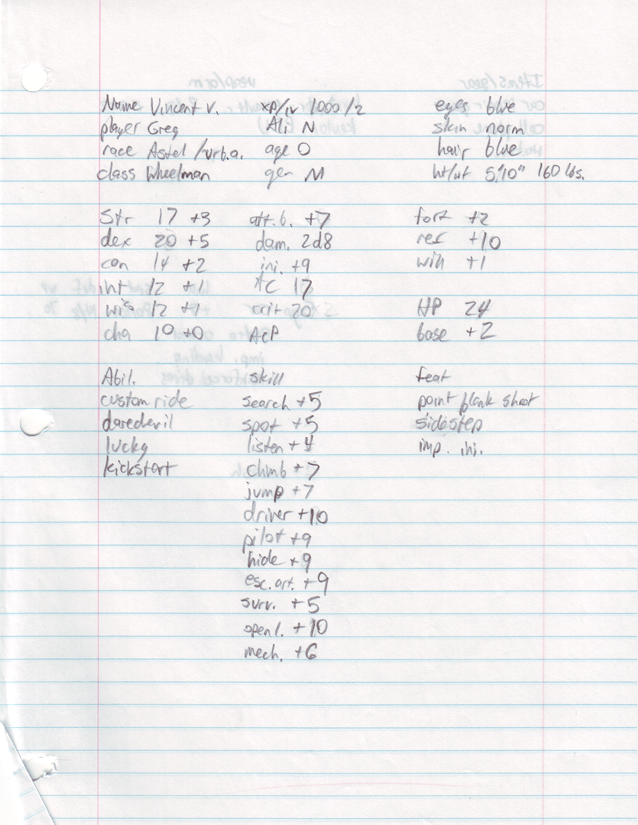 Name Vincent V. xp/lv 1000/2 eyes blue
player Greg Ali N skin norm
race Astel/urb.a. age O hair blue
class Wheelman gen M ht/wt 5,10" 160 lbs.
Str 17 +3 att.b. +7 fort +2
dex 20 +5 dam. 2d8 ref +10
con 14 +2 ini. +9 will +1
int 12 +1 AC 17
wis 12 +1 crit 20 HP 24
cha 10 +0 ACP base +2
Abil. skill feat
custom ride search +5 point blank shoot
daredevil spot +5 sidestep
lucky listen +4 imp. ini.
kickstart climb +7
jump +7
driver +10
pilot +9
hide +9
esc. art. +9
surv. +5
open l. +10
mech. +6